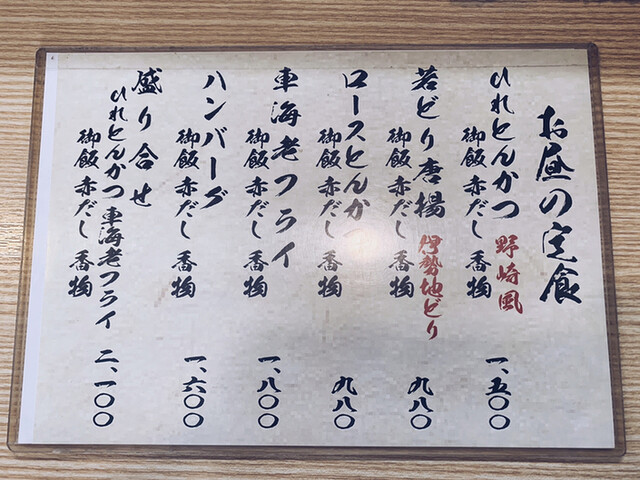 お昼の定食
ひれとんかつ 野崎風 一、五〇〇
御飯 赤だし 香物
若どり唐揚 伊勢地どり 九八〇
御飯 赤だし 香物
ロースとんかつ 九八〇
御飯 赤だし 香物
車海老フライ 一、八〇〇
御飯 赤だし 香物
ハンバーグ 一、六〇〇
御飯 赤だし 香物
盛り合せ
ひれとんかつ 車海老フライ 二、一〇〇
御飯 赤だし 香物